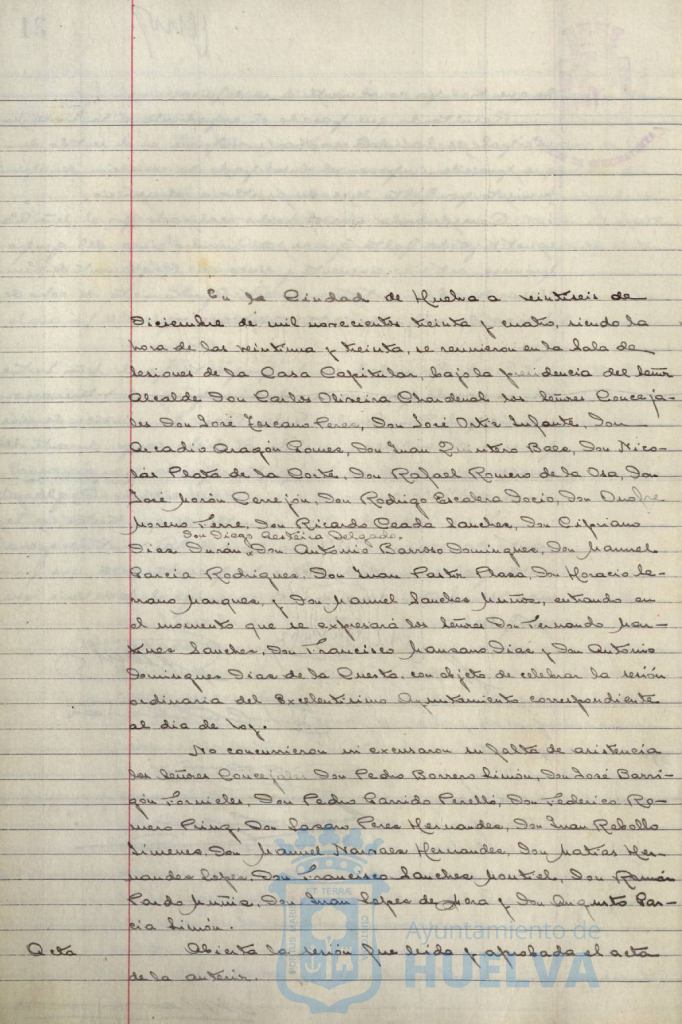 En la Ciudad de Huelva a veintiseis de
Diciembre de mil novecientos treinta y cuatro, siendo la
hora de las veintiuna y treinta, se reunieron en la Sala de
Sesiones de la Casa Capitular, bajo la presidencia del Señor
Alcalde Don Carlos Oliveira Chardenal los Señores Conceja-
les Don José Toscano Perez, Don José Ortiz Infante, Don
Arcadio Aragón Gomez, Don Juan Quintero Baez, Don Nico-
lás Plata de la Corte, Don Rafael Romero de la Osa, Don
José Morón Cerrejón, Don Rodrigo Escalera Docio, Don Onofre
Moreno Ferre, Don Ricardo Ceada Sanchez, Don Cipriano
Don Diego Gesteira Delgado.
Diaz Durán, Don Antonio Barroso Dominguez, Don Manuel
Garcia Rodriguez, Don Juan Pastor Plaza, Don Horacio Se-
rrano Marquez, y Don Manuel Sanchez Muñoz, entrando en
el momento que se expresará los Señores Don Fernando Mar-
tinez Sanchez, Don Francisco Manzano Diaz y Don Antonio
Dominguez Diaz de la Cuesta, con objeto de celebrar la sesión
ordinaria del Excelentísimo Ayuntamiento correspondiente
al dia de hoy.
No concurrieron ni excusaron su falta de asistencia
los Señores Concejales Don Pedro Borrero Limón, Don José Barri-
gón Fornieles, Don Pedro Garrido Perelló, Don Federico Ro-
mero Prinz, Don Lazaro Perez Hernandez, Don Juan Rebollo
Jimenez, Don Manuel Narvaez Hernandez, Don Matías Her-
nandez Lopez, Don Francisco Sanchez Montiel, Don Ramón
Pardo Muñiz, Don Juan Lopez de Mora y Don Augusto Gar-
cia Limón.
Acta Abierta la sesión fue leida y aprobada el acta
de la anterior.
Ayuntamiento de
HUELVA